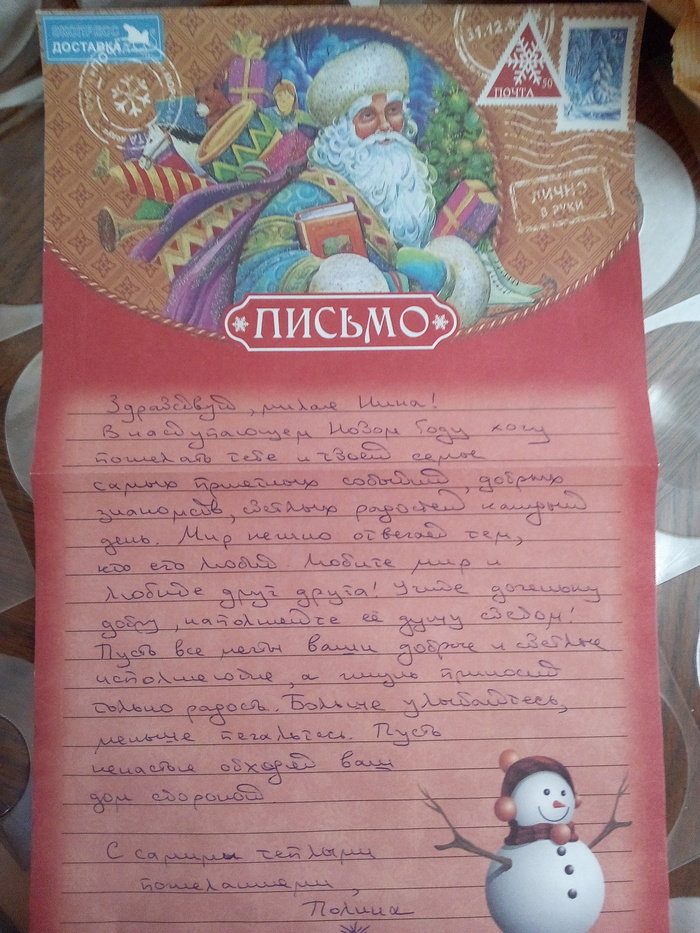 ЭКСПРЕСС
ДОСТАВКА
31.12.
ПОЧТА
50
25
ЛИЧНО
В РУКИ
ПИСЬМО
Здравствуй, милая Нина!
В наступающем Новом Году хочу
пожелать тебе и твоей семье
самых приятных событий, добрых
знакомств, светлых радостей каждый
день. Мир нежно отвечает тем,
кто его любит. Любите мир и
любите друг друга! Учите доченьку
добру, наполняйте её душу светом!
Пусть все мечты ваши добрые и светлые
исполняются, а жизнь приносит
только радость. Больше улыбайтесь,
меньше печальтесь. Пусть
ненастье обходят ваш
дом стороной
С самыми теплыми
пожеланиями,
Полина